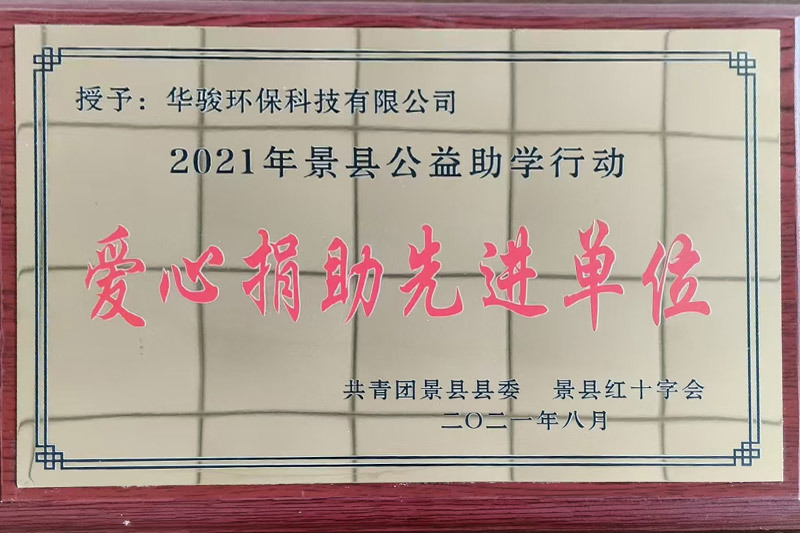 授予：华骏环保科技有限公司
2021年景县公益助学行动
爱心捐助先进单位
共青团景县县委 景县红十字会
二〇二一年八月